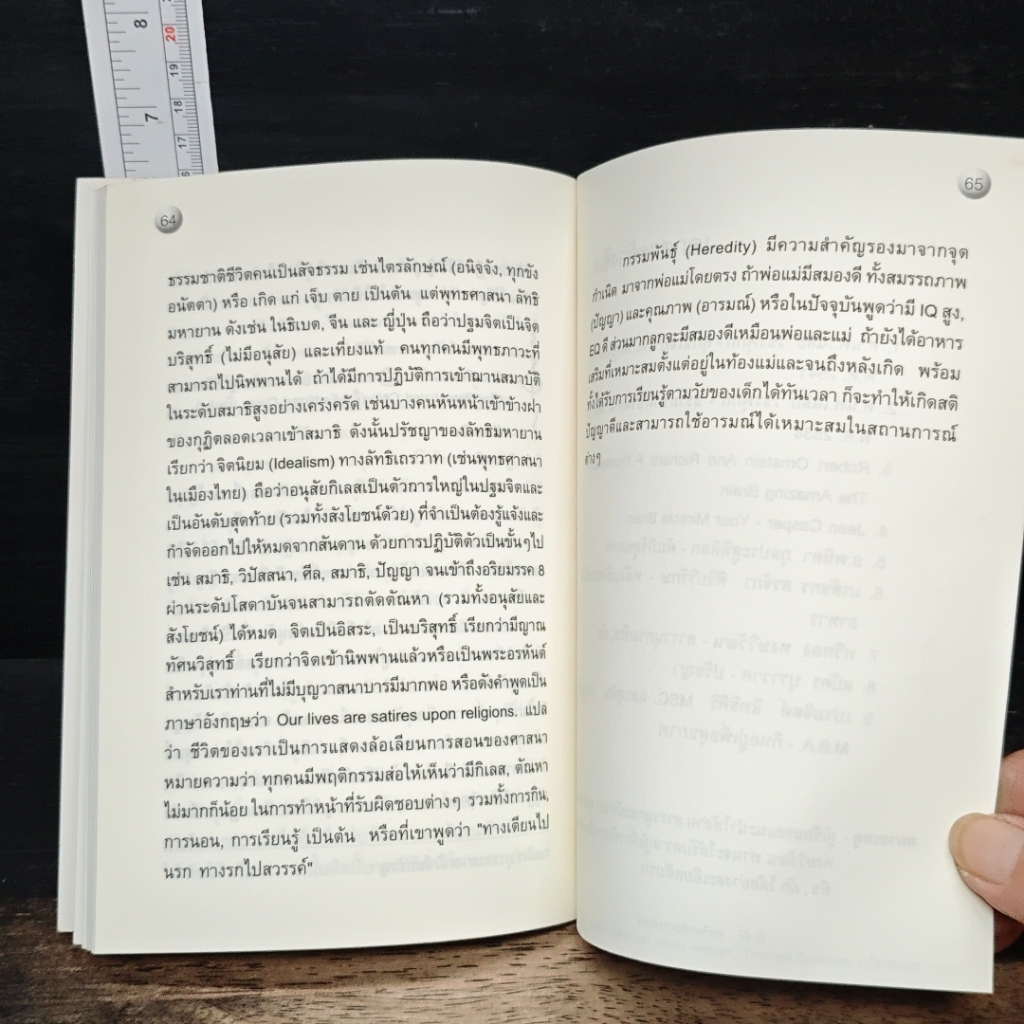 8
20
19
7
18
17
64
ธรรมชาติชีวิตคนเป็นสัจธรรม เช่นไตรลักษณ์ (อนิจจัง, ทุกขัง
อนัตตา) หรือ เกิด แก่ เจ็บ ตาย เป็นต้น แต่พุทธศาสนา ลัทธิ
มหายาน ดังเช่น ในธิเบต, จีน และ ญี่ปุ่น ถือว่าปฐมจิตเป็นจิต
บริสุทธิ์ (ไม่มีอนุสัย) และเที่ยงแท้ คนทุกคนมีพุทธภาวะที่
สามารถไปนิพพานได้ ถ้าได้มีการปฏิบัติการเข้าฌานสมาบัติ
ในระดับสมาธิสูงอย่างเคร่งครัด เช่นบางคนหันหน้าเข้าข้างฝา
ของกุฏิตลอดเวลาเข้าสมาธิ ดังนั้นปรัชญาของลัทธิมหายาน
เรียกว่า จิตนิยม (Idealism) ทางลัทธิเถรวาท (เช่นพุทธศาสนา
ในเมืองไทย) ถือว่าอนุสัยกิเลสเป็นตัวการใหญ่ในปฐมจิตและ
เป็นอันดับสุดท้าย (รวมทั้งสังโยชน์ด้วย) ที่จำเป็นต้องรู้แจ้งและ
กำจัดออกไปให้หมดจากสันดาน ด้วยการปฏิบัติตัวเป็นขั้นๆไป
เช่น สมาธิ, วิปัสสนา, ศีล, สมาธิ, ปัญญา จนเข้าถึงอริยมรรค 8
ผ่านระดับโสดาบันจนสามารถตัดตัณหา (รวมทั้งอนุสัยและ
สังโยชน์) ได้หมด จิตเป็นอิสระ, เป็นบริสุทธิ์ เรียกว่ามีญาณ
ทัศนวิสุทธิ์ เรียกว่าจิตเข้านิพพานแล้วหรือเป็นพระอรหันต์
สำหรับเราท่านที่ไม่มีบุญวาสนาบารมีมากพอ หรือดังคำพูดเป็น
ภาษาอังกฤษว่า Our lives are satires upon religions. แปล
ว่า ชีวิตของเราเป็นการแสดงล้อเลียนการสอนของศาสนา
หมายความว่า ทุกคนมีพฤติกรรมส่อให้เห็นว่ามีกิเลส, ตัณหา
ไม่มากก็น้อย ในการทำหน้าที่รับผิดชอบต่างๆ รวมทั้งการกิน,
การนอน, การเรียนรู้ เป็นต้น หรือที่เขาพูดว่า "ทางเตียนไป
นรก ทางรกไปสวรรค์"
65
กรรมพันธุ์ (Heredity) มีความสำคัญรองมาจากจุด
กำเนิด มาจากพ่อแม่โดยตรง ถ้าพ่อแม่มีสมองดี ทั้งสมรรถภาพ
(ปัญญา) และคุณภาพ (อารมณ์) หรือในปัจจุบันพูดว่ามี IQ สูง,
EQ ดี ส่วนมากลูกจะมีสมองดีเหมือนพ่อและแม่ ถ้ายังได้อาหาร
เสริมที่เหมาะสมตั้งแต่อยู่ในท้องแม่และจนถึงหลังเกิด พร้อม
ทั้งได้รับการเรียนรู้ตามวัยของเด็กได้ทันเวลา ก็จะทำให้เกิดสติ
ปัญญาดีและสามารถใช้อารมณ์ได้เหมาะสมในสถานการณ์
ต่างๆ